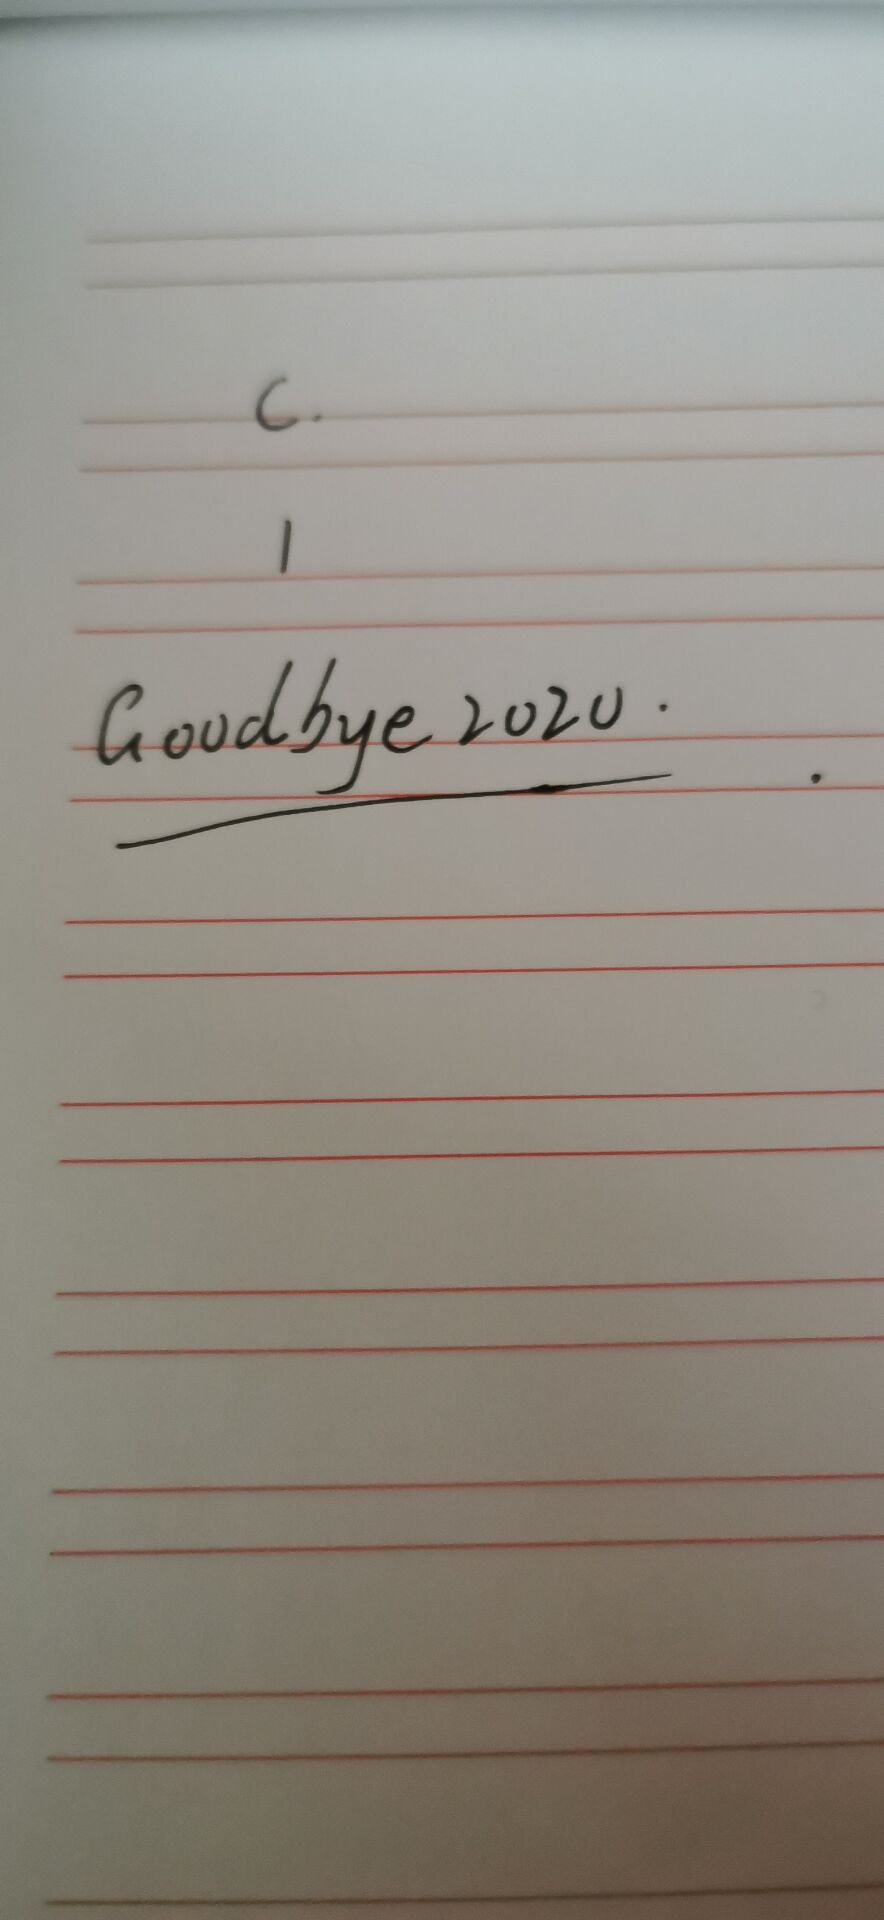 C.
1
Goodbye 2020.